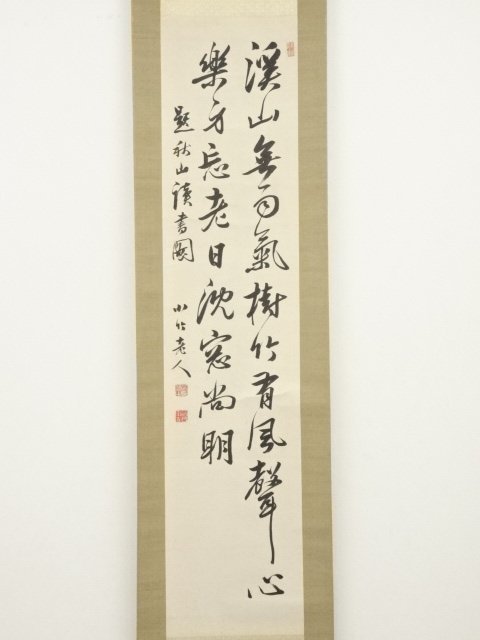 溪山無雨氣樹竹有風聲心
樂方忘老日沈窓尚明
題秋山讀書圖
小竹老人